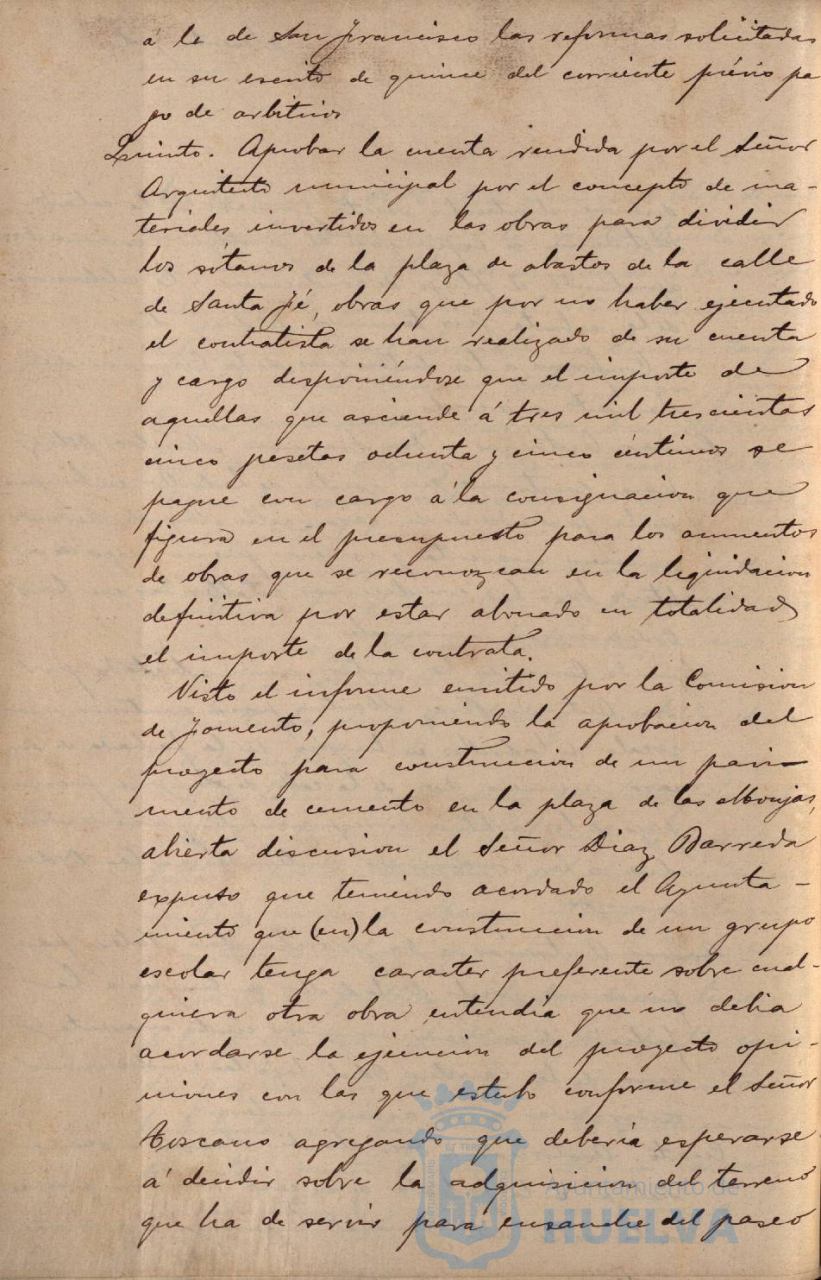 á la de San Francisco las reformas solicitadas
en su escrito de quince del corriente prévio pa
go de arbitrios
Quinto. Aprobar la cuenta rendida por el Señor
Arquitecto municipal por el concepto de ma-
teriales invertidos en las obras para dividir
los sótanos de la plaza de abastos de la calle
de Santa Fé, obras que por no haber ejecutado
el contratista se han realizado de su cuenta
y cargo disponiéndose que el importe de
aquellas que asciende á tres mil trescientas
cinco pesetas ochenta y cinco céntimos se
pague con cargo á la consignacion que
figura en el presupuesto para los aumentos
de obras que se reconozcan en la liquidacion
definitiva por estar abonado en totalidad
el importe de la contrata.
Visto el informe emitido por la Comision
de Fomento, proponiendo la aprobacion del
proyecto para construccion de un pavi-
mento de cemento en la plaza de las Monjas,
abierta discusion el Señor Diaz Barreda
expuso que teniendo acordado el Ayunta-
miento que (en) la construccion de un grupo
escolar tenga caracter preferente sobre cual-
quiera otra obra entendia que no debia
acordarse la ejecucion del proyecto opi-
niones con las que estubo conforme el Señor
Toscano agregando que deberia esperarse
á decidir sobre la adquisicion del terreno
que ha de servir para ensanche del paseo
Ayuntamiento de
HUELVA